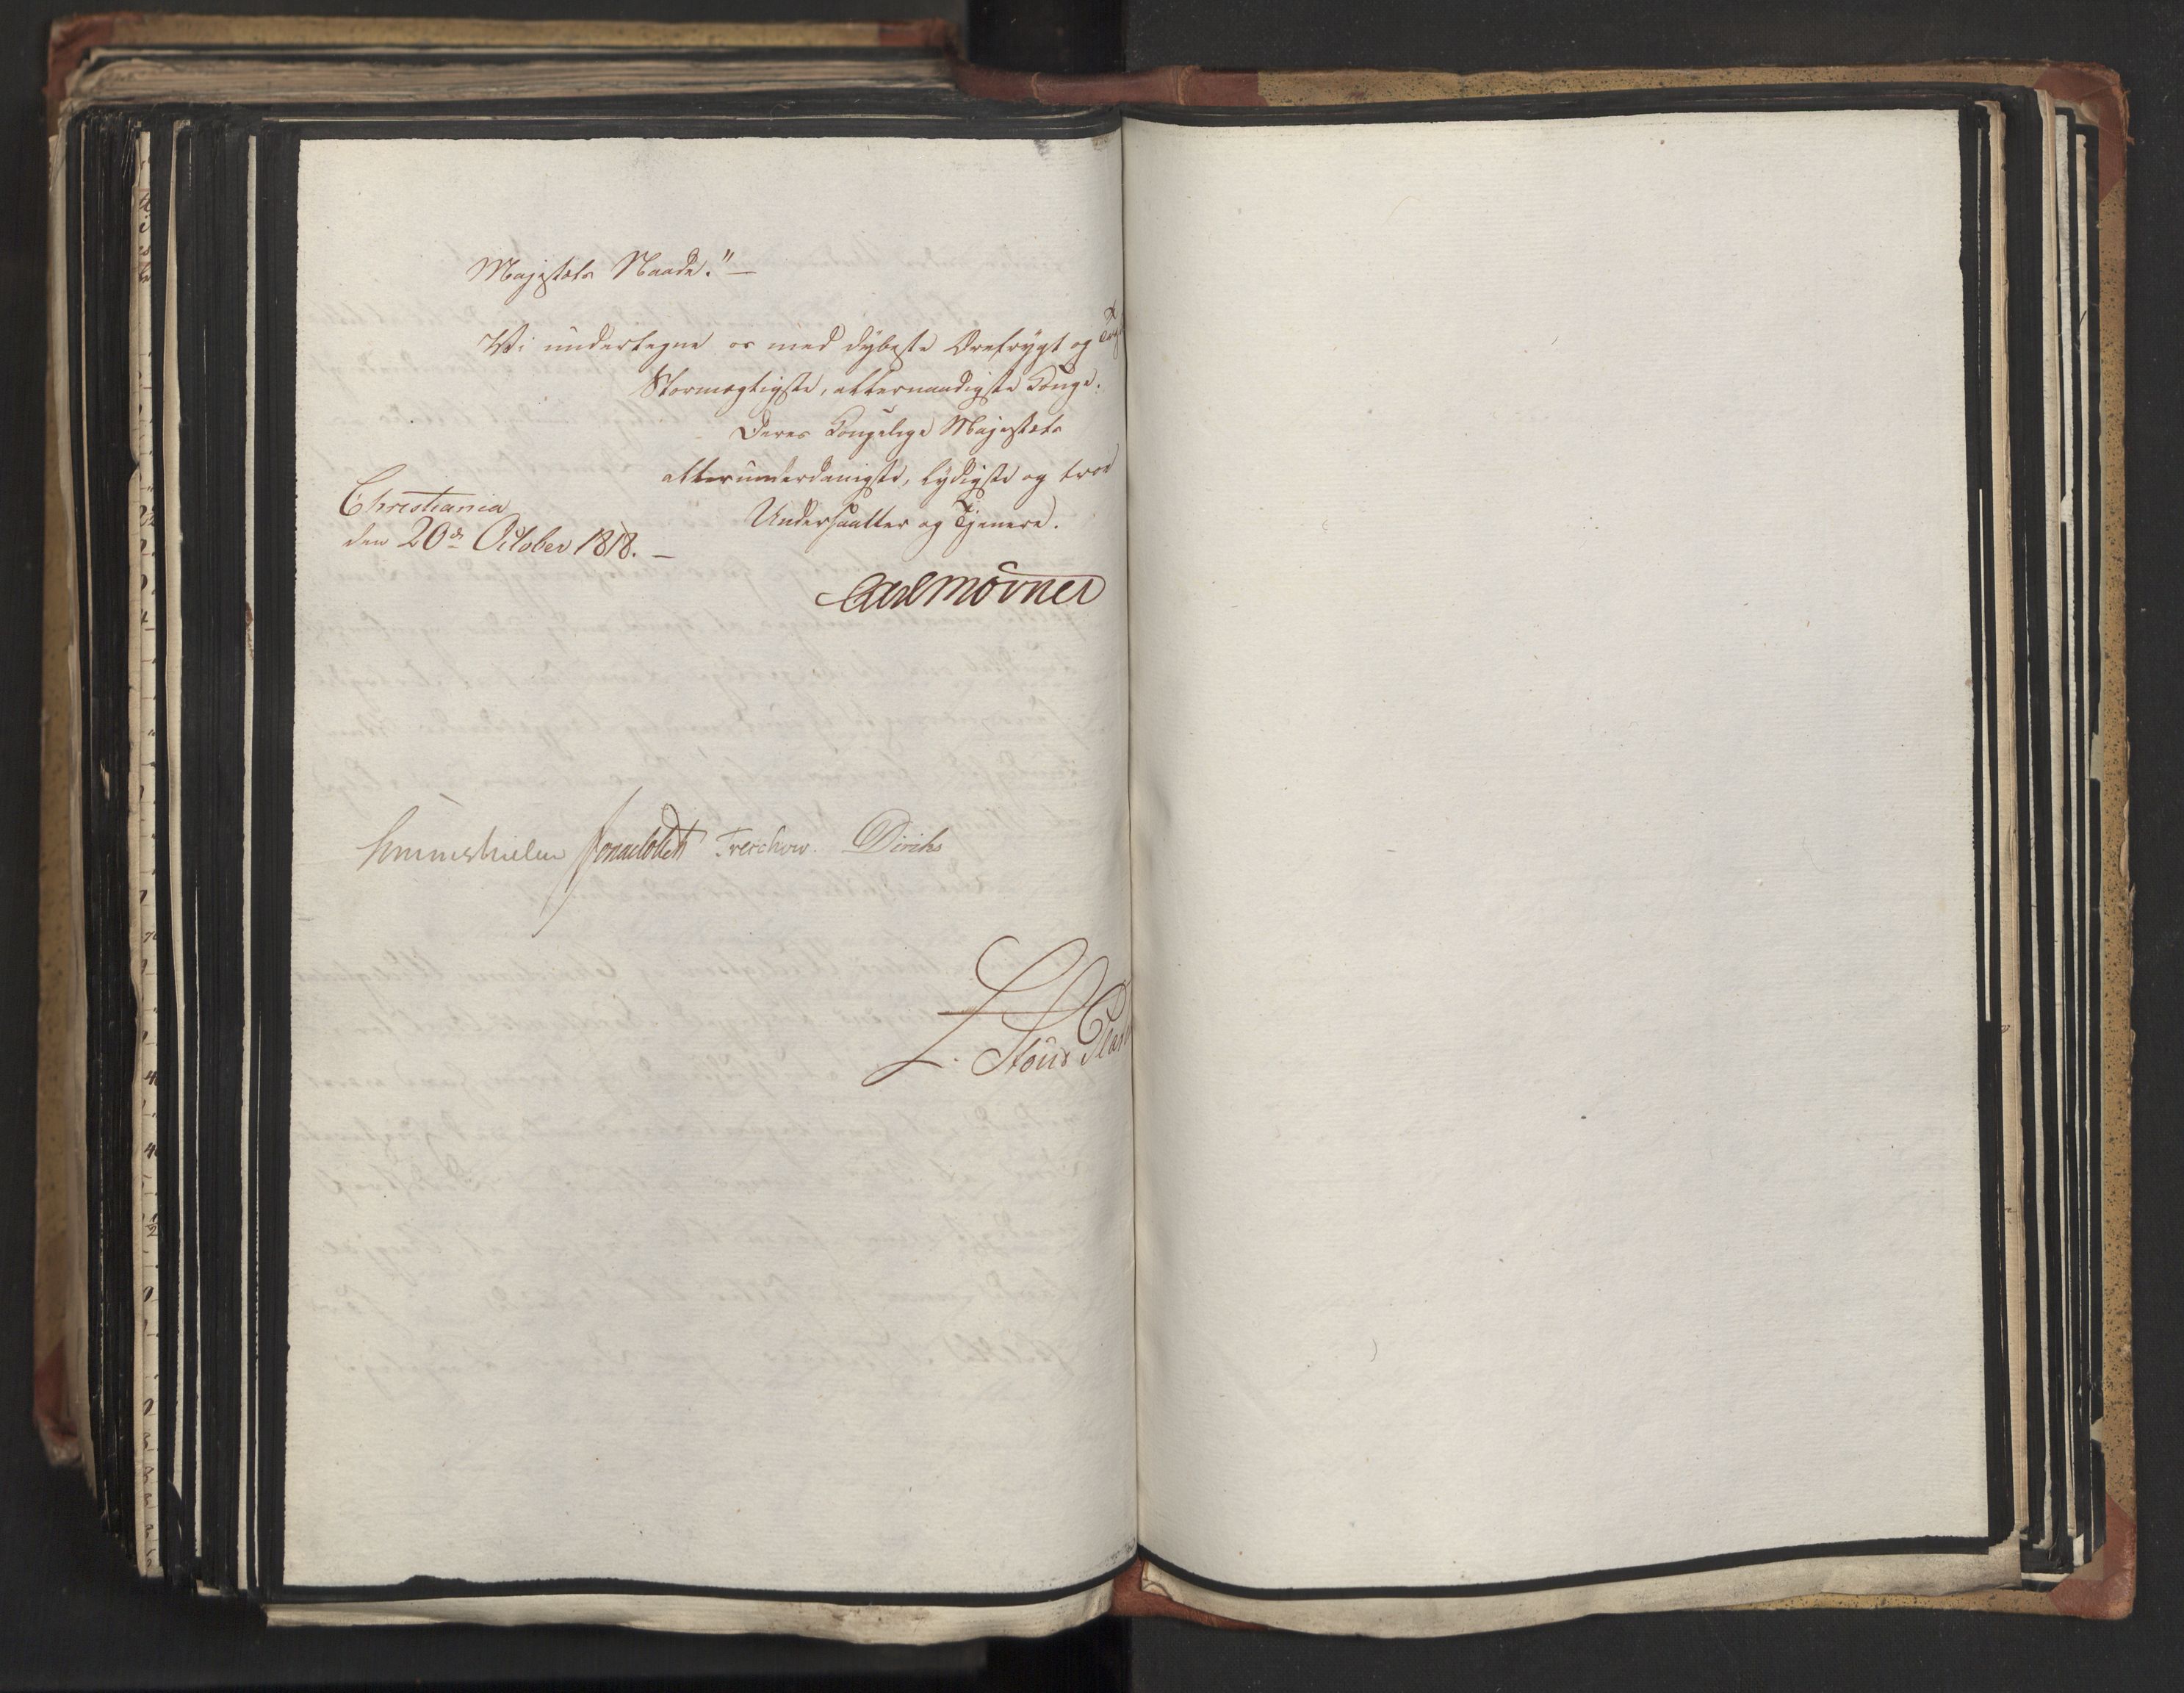 Majestæts Naade."—
Vi undertegne os med dybeste Ærefrygt og
Stormægtigste, allernaadigste Konge!
Deres Kongelige Majestæts
allerunderdanigste, lydigste og troe
Undersaatter og Tjenere.
Christiania
den 20de October 1818. —
Carl Mörner
Sommerhielm Jonas Collett Treschow. Diriks
L. Stoud Plat